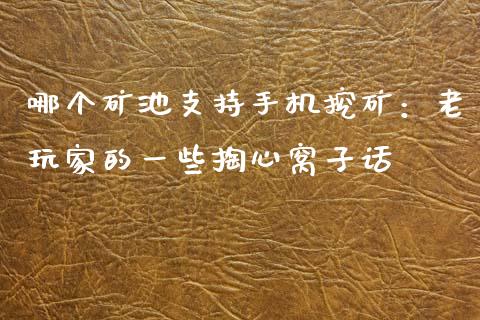 哪个矿池支持手机挖矿：老
玩家的一些掏心窝子话